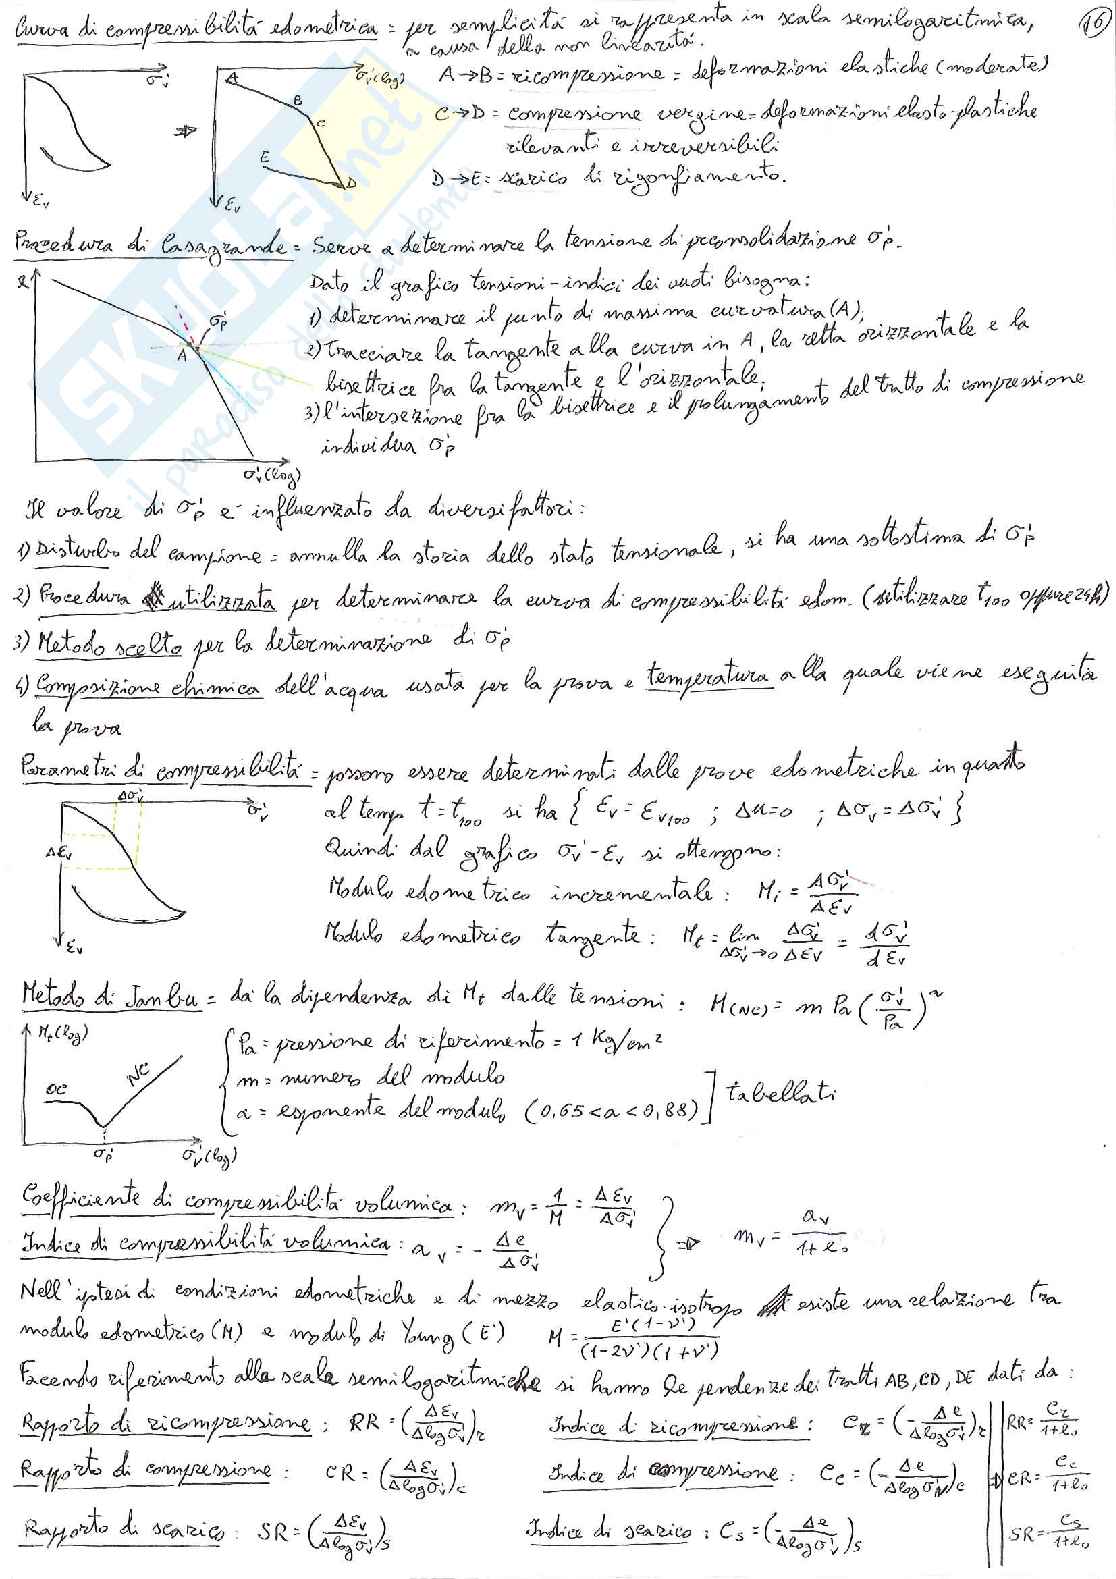 Curva di compressibilitá edometrica = per semplicitá si rappresenta in scala semilogaritmica, 16
a causa della non linearitá.
σ'v σ'v(log) A→B = ricompressione = deformazioni elastiche (moderate)
A B C D E
C→D = compressione vergine = deformazioni elasto-plastiche
rilevanti e irreversibili
D→E = scarico di rigonfiamento.
εv εv
Procedura di Casagrande = Serve a determinare la tensione di preconsolidazione σ'p.
e Dato il grafico tensioni-indici dei vuoti bisogna:
1) determinare il punto di massima curvatura (A);
σ'p A
2) Tracciare la tangente alla curva in A, la retta orizzontale e la
bisettrice fra la tangente e l'orizzontale;
3) l'intersezione fra la bisettrice e il prolungamento del tratto di compressione
individua σ'p
σ'v(log)
Il valore di σ'p e' influenzato da diversi fattori:
1) Disturbo del campione = annulla la storia dello stato tensionale, si ha una sottostima di σ'p
2) Procedura utilizzata per determinare la curva di compressibilitá edom. (utilizzare t100 oppure 24h)
3) Metodo scelto per la determinazione di σ'p
4) Composizione chimica dell'acqua usata per la prova e temperatura alla quale viene eseguita
la prova
Parametri di compressibilitá = possono essere determinati dalle prove edometriche in quanto
Δσ'v σ'v al temp. t = t100 si ha { εv = εv100 ; Δu=0 ; Δσv = Δσ'v }
Δεv Quindi dal grafico σ'v-εv si ottengono:
Modulo edometrico incrementale: Mi = Δσ'v / Δεv
εv Modulo edometrico tangente: Mt = lim Δσ'v→0 Δσ'v / Δεv = dσ'v / dεv
Metodo di Janbu = dá la dipendenza di Mt dalle tensioni: M(NC) = m Pa (σ'v / Pa)^a
Mt(log) Pa = pressione di riferimento = 1 Kg/cm²
OC NC m = numero del modulo
a = esponente del modulo (0,65<a<0,88) ] tabellati
σ'p σ'v(log)
Coefficiente di compressibilitá volumica: mv = 1/M = Δεv / Δσ'v
Indice di compressibilitá volumica: av = - Δe / Δσ'v } ⇒ mv = av / 1+e0
Nell'ipotesi di condizioni edometriche e di mezzo elastico-isotropo esiste una relazione tra
modulo edometrico (M) e modulo di Young (E') M = E'(1-ν') / (1-2ν')(1+ν')
Facendo riferimento alla scala semilogaritmiche si hanno le pendenze dei tratti AB, CD, DE dati da:
Rapporto di ricompressione: RR = (Δεv / Δlogσ'v)r Indice di ricompressione: Cr = (-Δe / Δlogσ'v)r RR = Cr / 1+e0
Rapporto di compressione: CR = (Δεv / Δlogσ'v)c Indice di compressione: Cc = (-Δe / Δlogσ'v)c ⇒ CR = Cc / 1+e0
Rapporto di scarico: SR = (Δεv / Δlogσ'v)s Indice di scarico: Cs = (-Δe / Δlogσ'v)s SR = Cs / 1+e0
SKUOLA.net
il paradiso dello studente